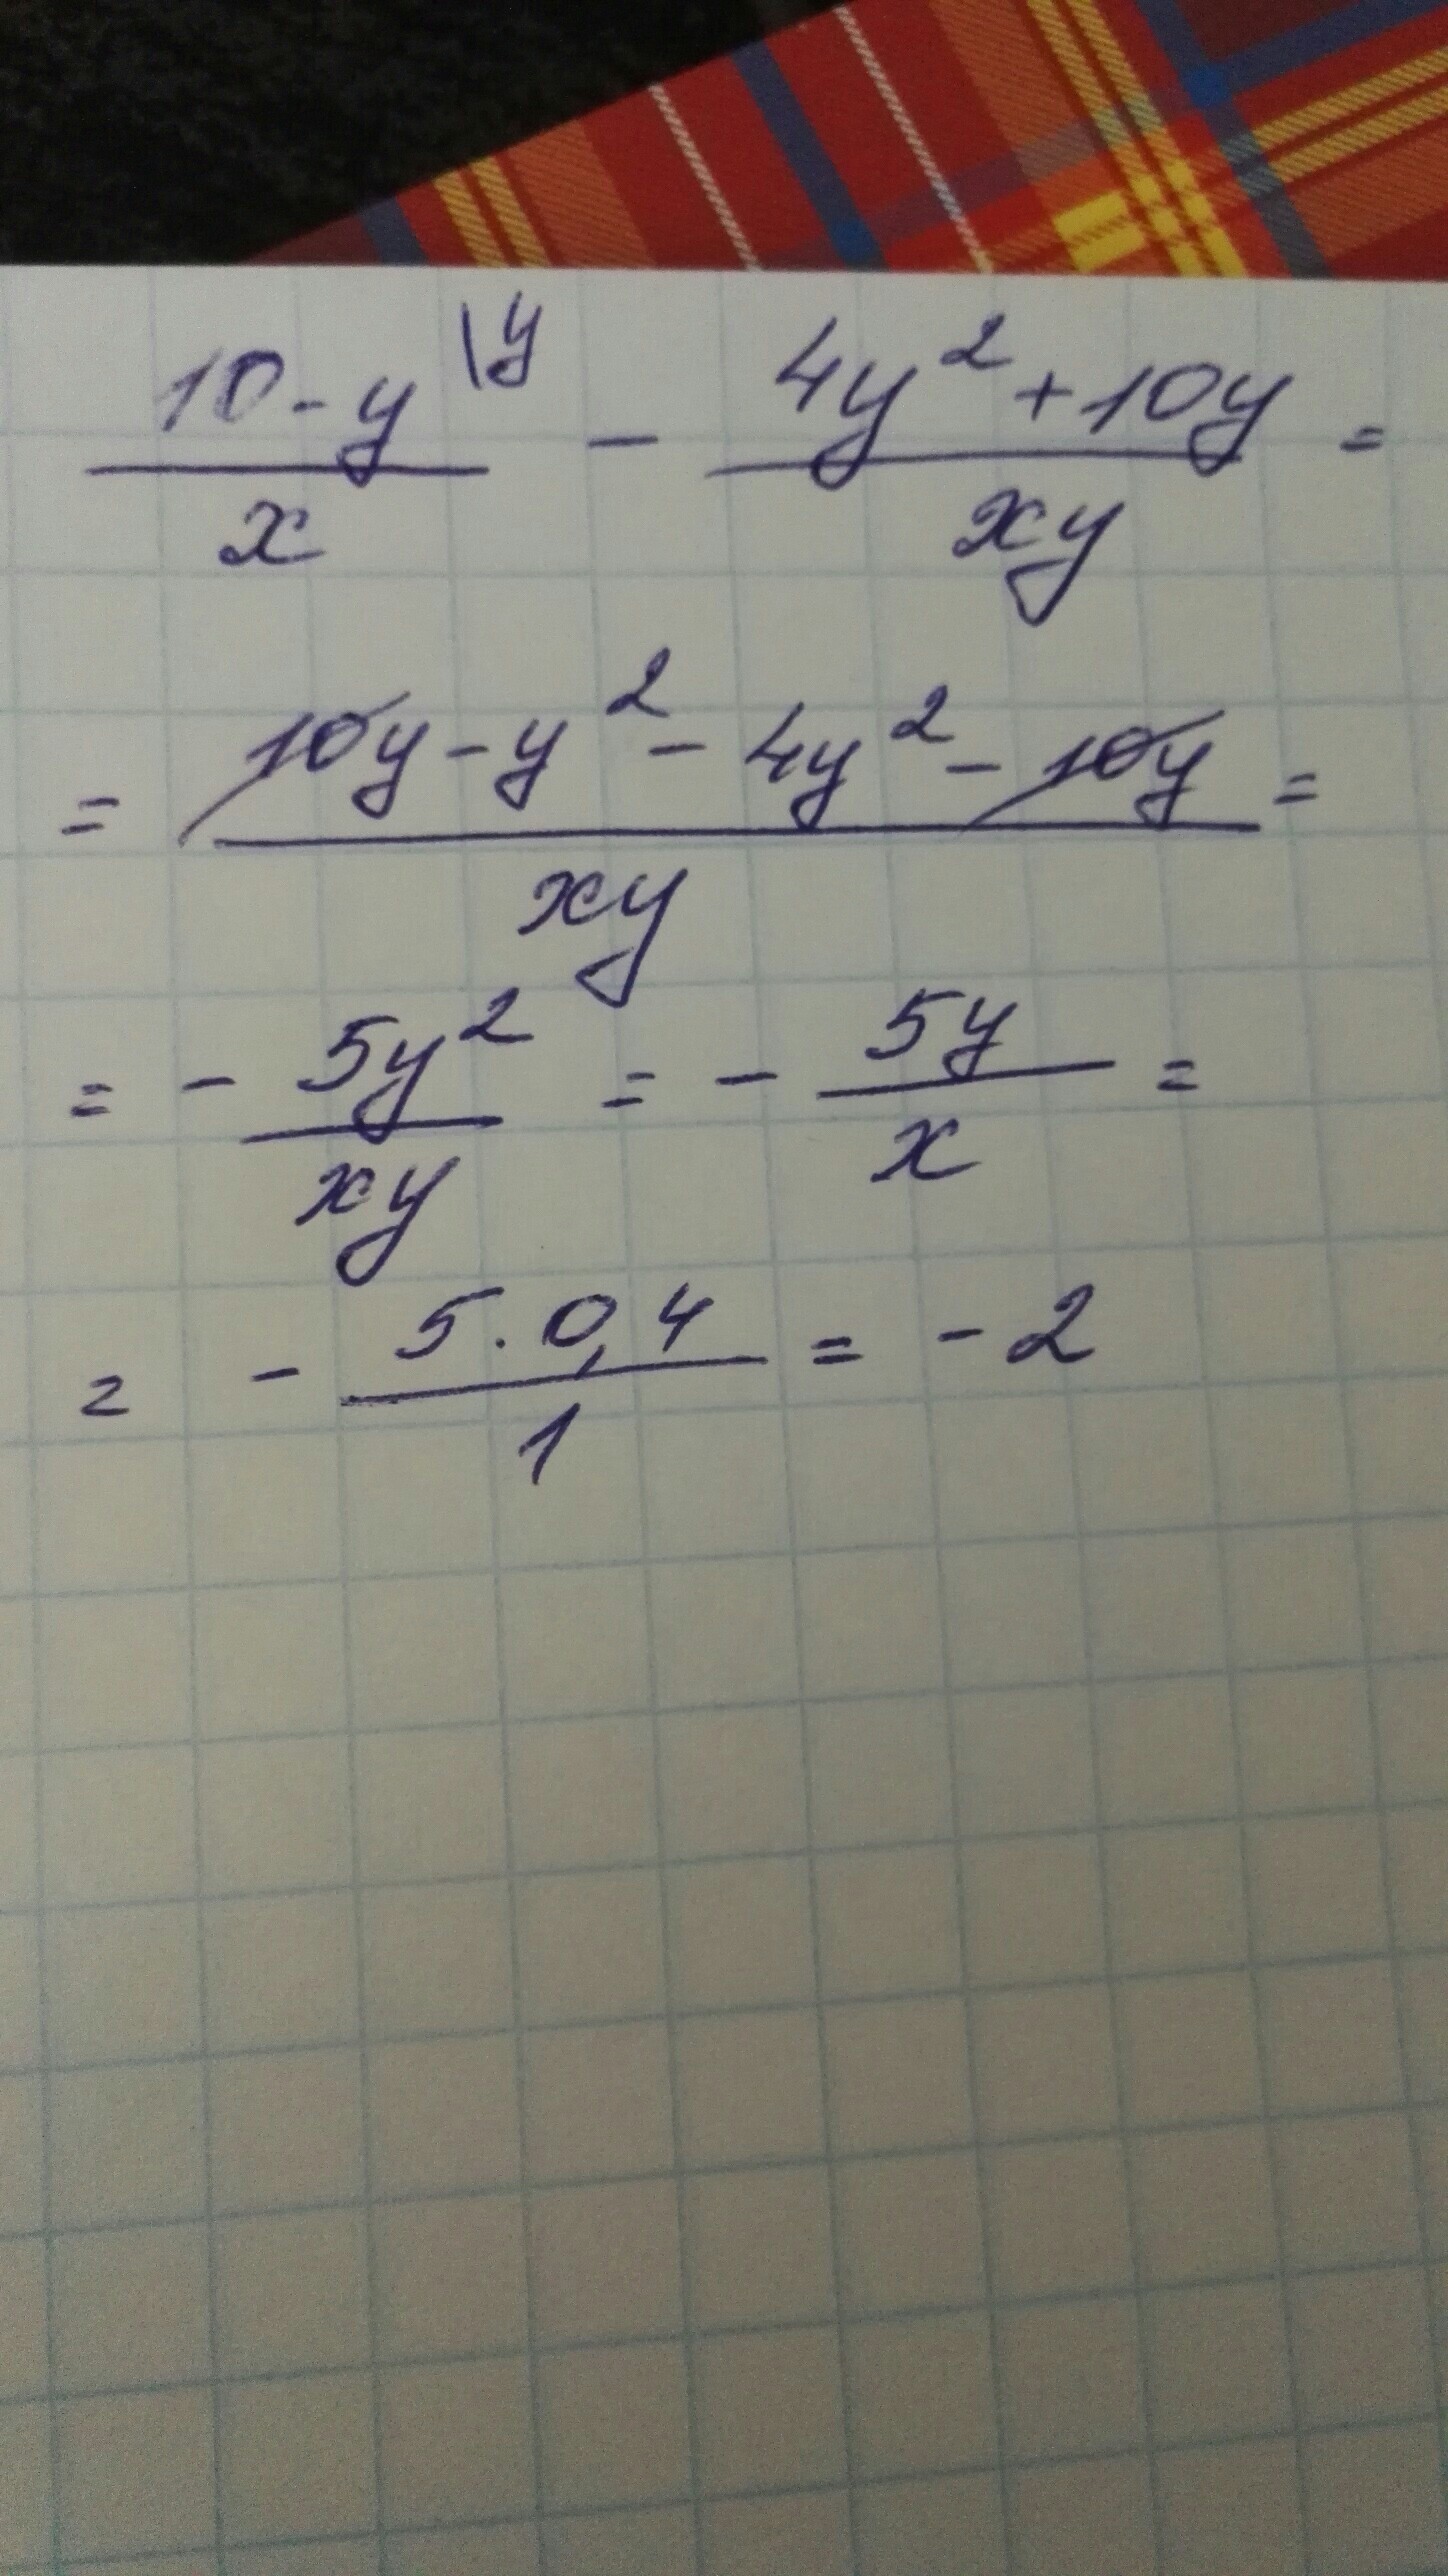 (10-y)/x \y - (4y²+10y)/xy =
= (10y-y²-4y²-10y)/xy =
= - 5y²/xy = - 5y/x =
= - 5·0,4/1 = -2